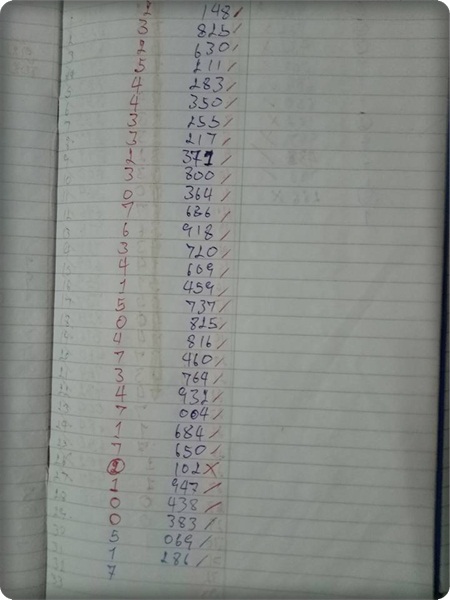 2 148/
3 825/
2 630/
5 211/
4 283/
4 350/
3 255/
3 217/
2 371/
3 800/
0 364/
7 686/
6 918/
3 720/
4 609/
1 459/
5 737/
0 825/
4 816/
7 460/
3 769/
4 932/
7 004/
1 684/
7 650/
2 102X
1 947/
0 438/
0 383/
5 069/
1 286/
7